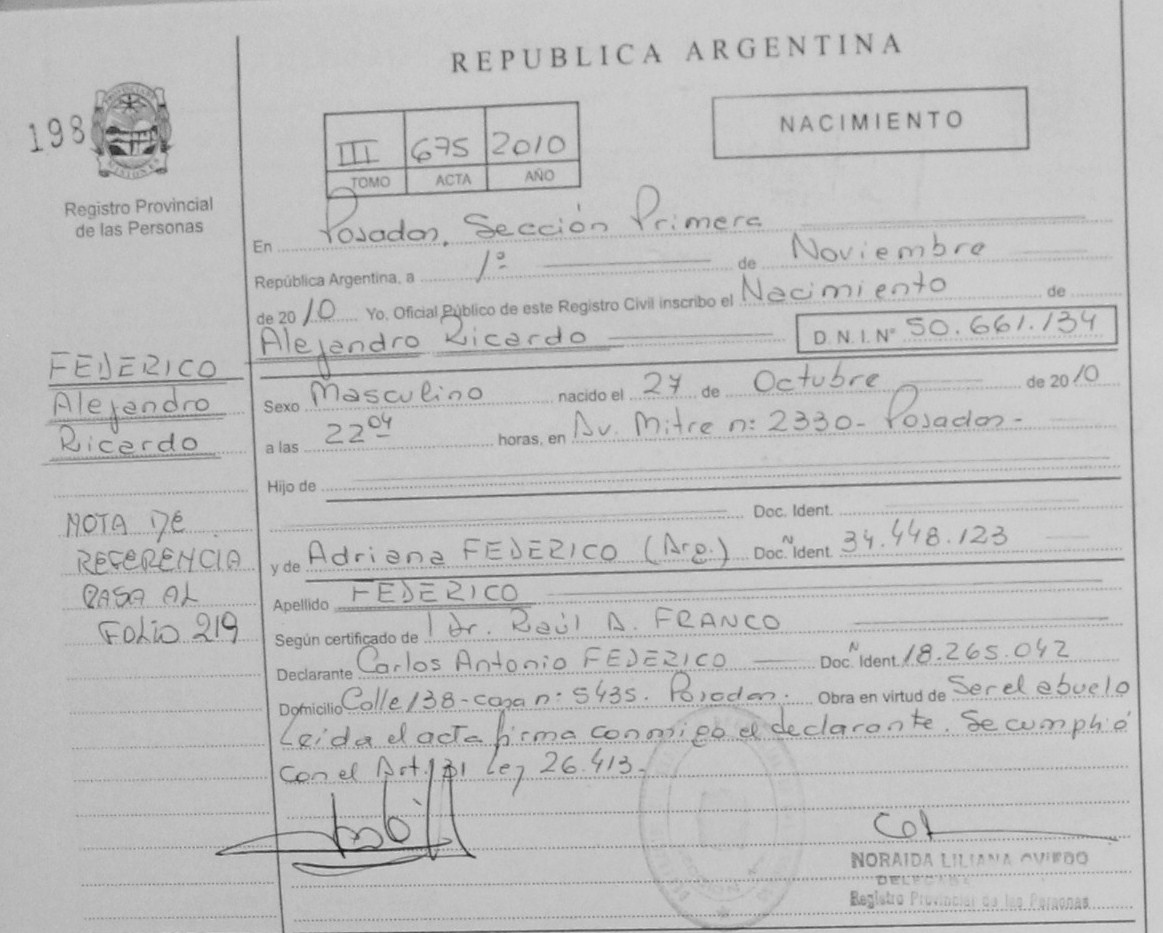 REPUBLICA ARGENTINA
198
NACIMIENTO
III 675 2010
TOMO ACTA AÑO
Registro Provincial
de las Personas
En Posadas, Sección Primera
República Argentina, a 1º de Noviembre
de 2010 Yo, Oficial Público de este Registro Civil inscribo el Nacimiento de
Alejandro Ricardo D.N.I.Nº 50.661.134
FEDERICO
Alejandro
Ricardo
Sexo Masculino nacido el 27 de Octubre de 2010
a las 22 04 horas, en Av. Mitre nº: 2330- Posadas-
Hijo de
Doc. Ident.
NOTA DE
REFERENCIA
PASA AL
FOLIO 219
y de Adriana FEDERICO (Arg.) Doc. N Ident. 34.448.123
Apellido FEDERICO
Según certificado de Dr. Raúl A. FRANCO
Declarante Carlos Antonio FEDERICO Doc. N Ident. 18.265.042
Domicilio Calle 138-casa nº: 5435. Posadas. Obra en virtud de Ser el abuelo
Leída el acta firma conmigo el declarante. Se cumplió
con el Art. Ley 26.413-
NORAIDA LILIANA OVIEDO
DELEGADA
Registro Provincial de las Personas